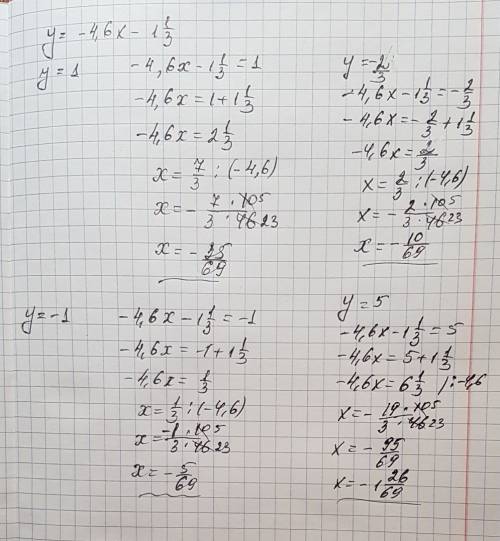 y = -4,6x - 1 1/3
y = 1
-4,6x - 1 1/3 = 1
-4,6x = 1 + 1 1/3
-4,6x = 2 1/3
x = 7/3 : (-4,6)
x = - 7 · 10 5 / 3 · 46 23
x = - 35/69
y = - 2/3
-4,6x - 1 1/3 = - 2/3
-4,6x = - 2/3 + 1 1/3
-4,6x = 2/3
x = 2/3 : (-4,6)
x = - 2 · 10 5 / 3 · 46 23
x = - 10/69
y = -1
-4,6x - 1 1/3 = -1
-4,6x = -1 + 1 1/3
-4,6x = 1/3
x = 1/3 : (-4,6)
x = -1 · 10 5 / 3 · 46 23
x = - 5/69
y = 5
-4,6x - 1 1/3 = 5
-4,6x = 5 + 1 1/3
-4,6x = 6 1/3 /: -4,6
x = - 19 · 10 5 / 3 · 46 23
x = - 95/69
x = -1 26/69